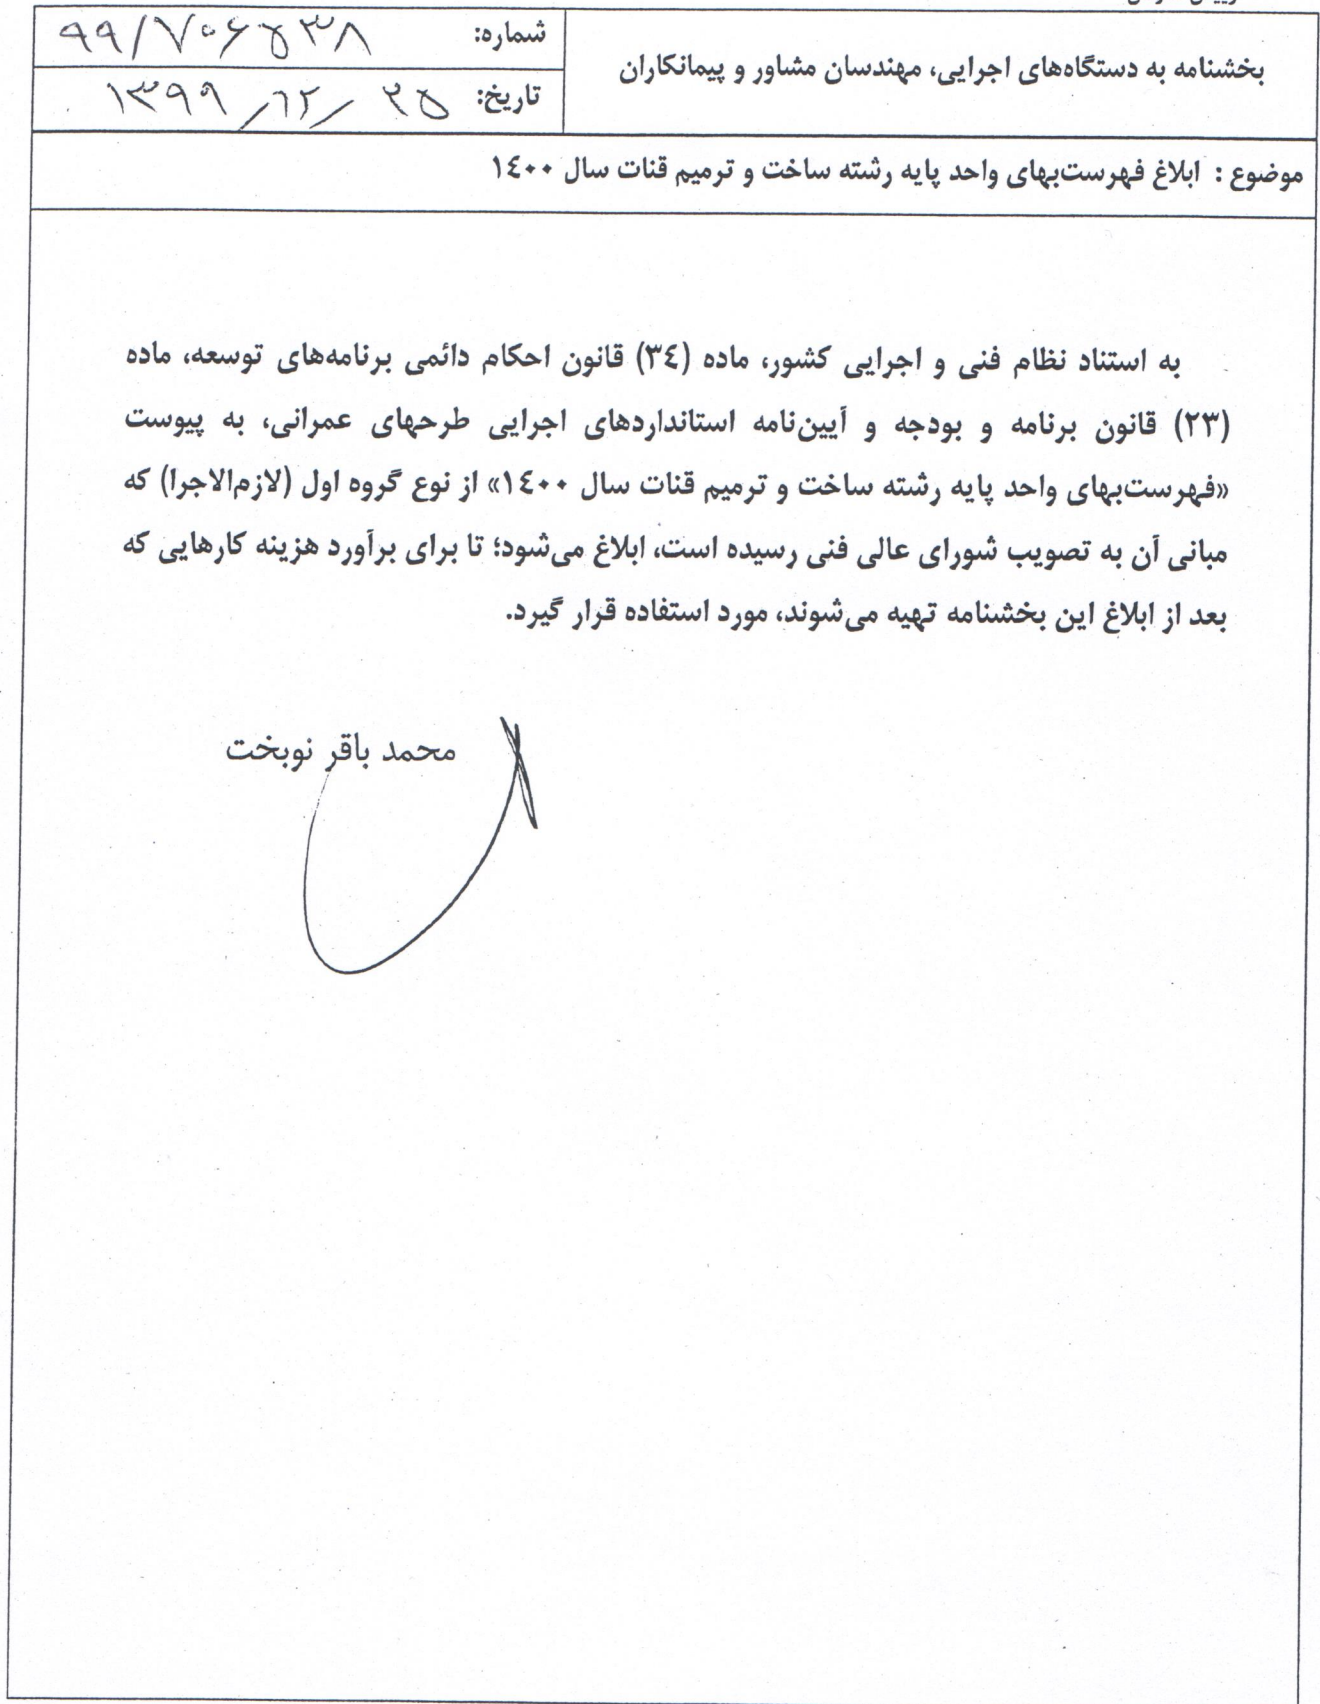 بخشنامه به دستگاه‌های اجرایی، مهندسان مشاور و پیمانکاران
شماره: ۹۹/۷۰۶۵۳۸
تاریخ: ۱۳۹۹/۱۲/۲۵
موضوع : ابلاغ فهرست‌بهای واحد پایه رشته ساخت و ترمیم قنات سال ۱٤۰۰
به استناد نظام فنی و اجرایی کشور، ماده (۳٤) قانون احکام دائمی برنامه‌های توسعه، ماده
(۲۳) قانون برنامه و بودجه و آیین‌نامه استانداردهای اجرایی طرحهای عمرانی، به پیوست
«فهرست‌بهای واحد پایه رشته ساخت و ترمیم قنات سال ۱٤۰۰» از نوع گروه اول (لازم‌الاجرا) که
مبانی آن به تصویب شورای عالی فنی رسیده است، ابلاغ می‌شود؛ تا برای برآورد هزینه کارهایی که
بعد از ابلاغ این بخشنامه تهیه می‌شوند، مورد استفاده قرار گیرد.
محمد باقر نوبخت